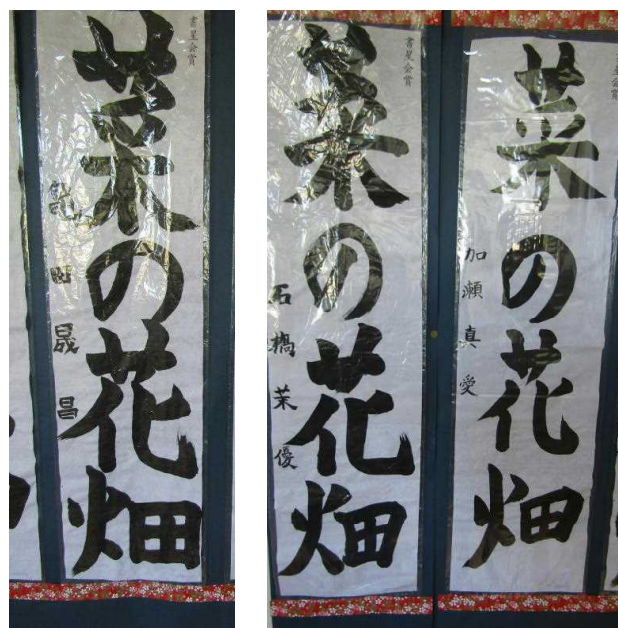 書星会賞
菜の花畑
晟昌
書星会賞
菜の花畑
石橋茉優
菜の花畑
加瀬真愛